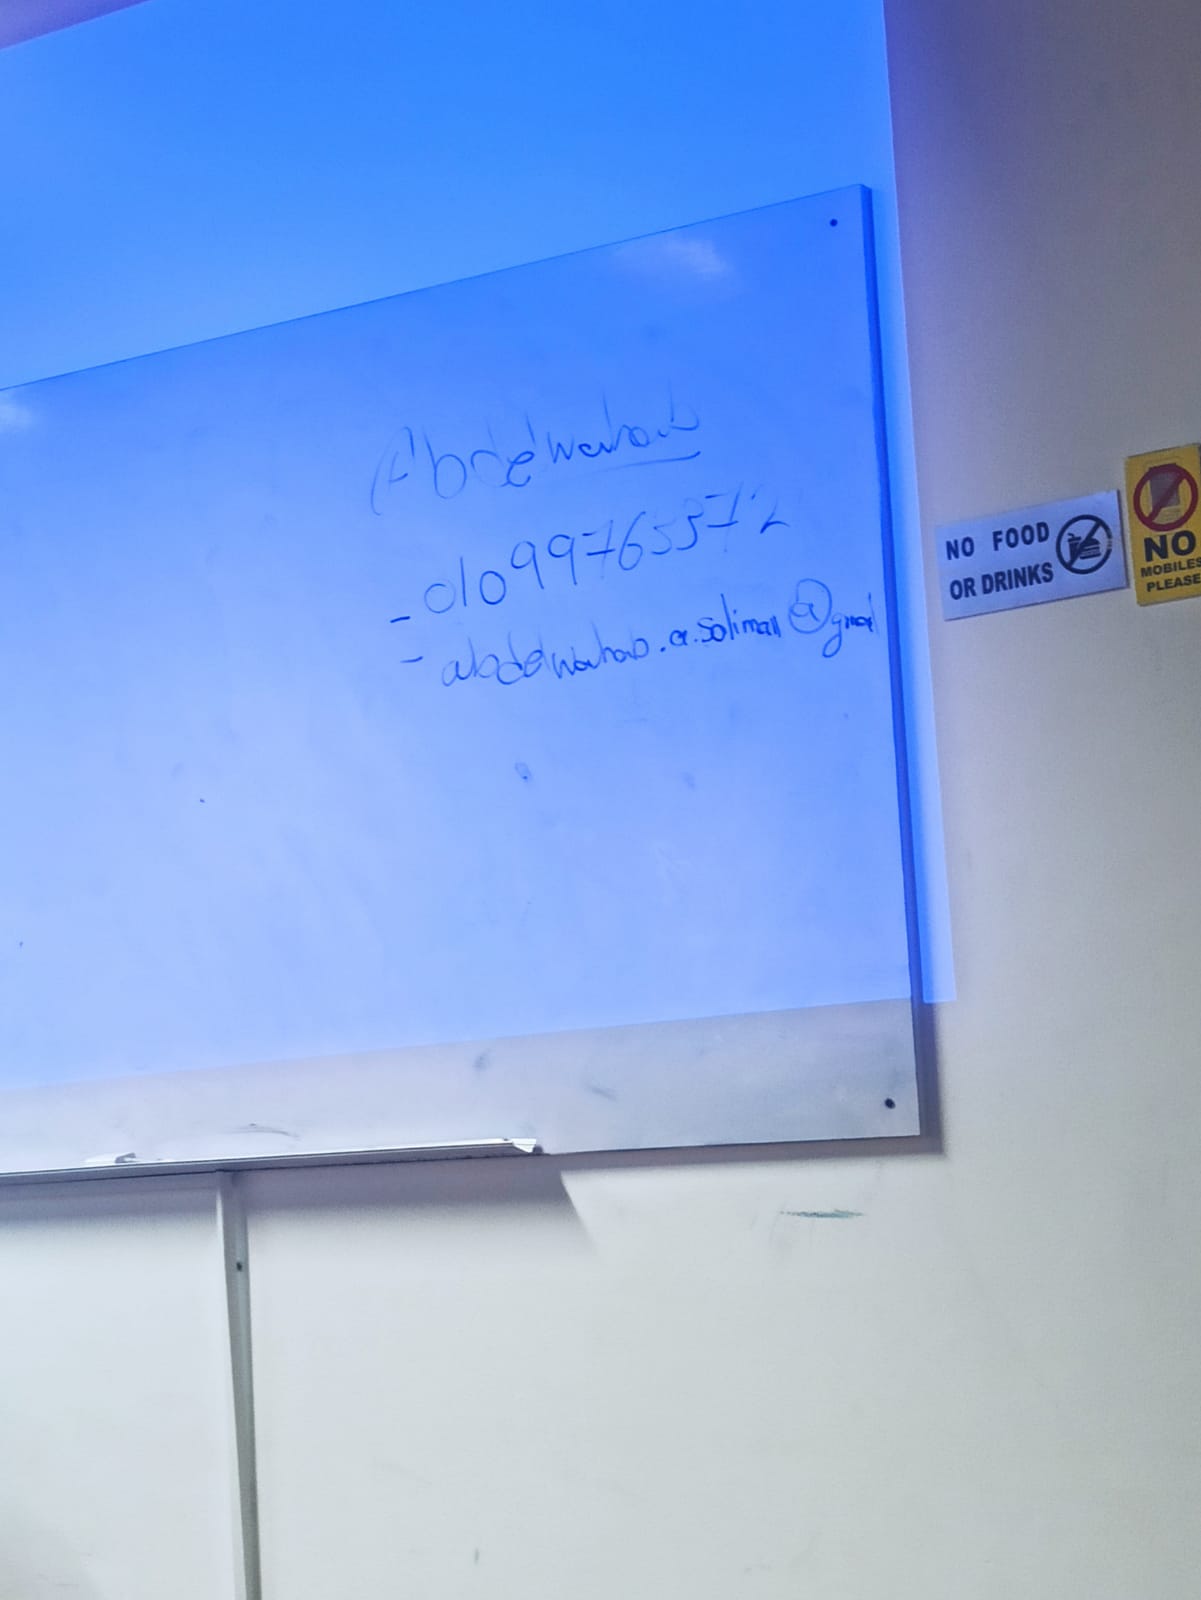 Abdelwahab
- 01099765372
- abdelwahab.a.soliman@gmail
NO FOOD
OR DRINKS
NO
MOBILES
PLEASE